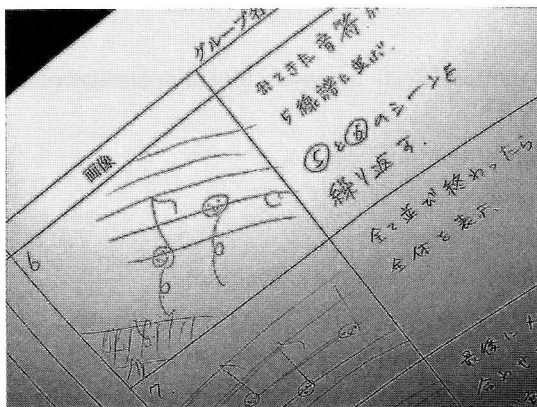 グループ名
画像
6
出てきた音符が
5線譜に並ぶ.
⑤と⑥のシーンを
繰り返す.
全て並び終わったら
全体を表示.
7.
最後に